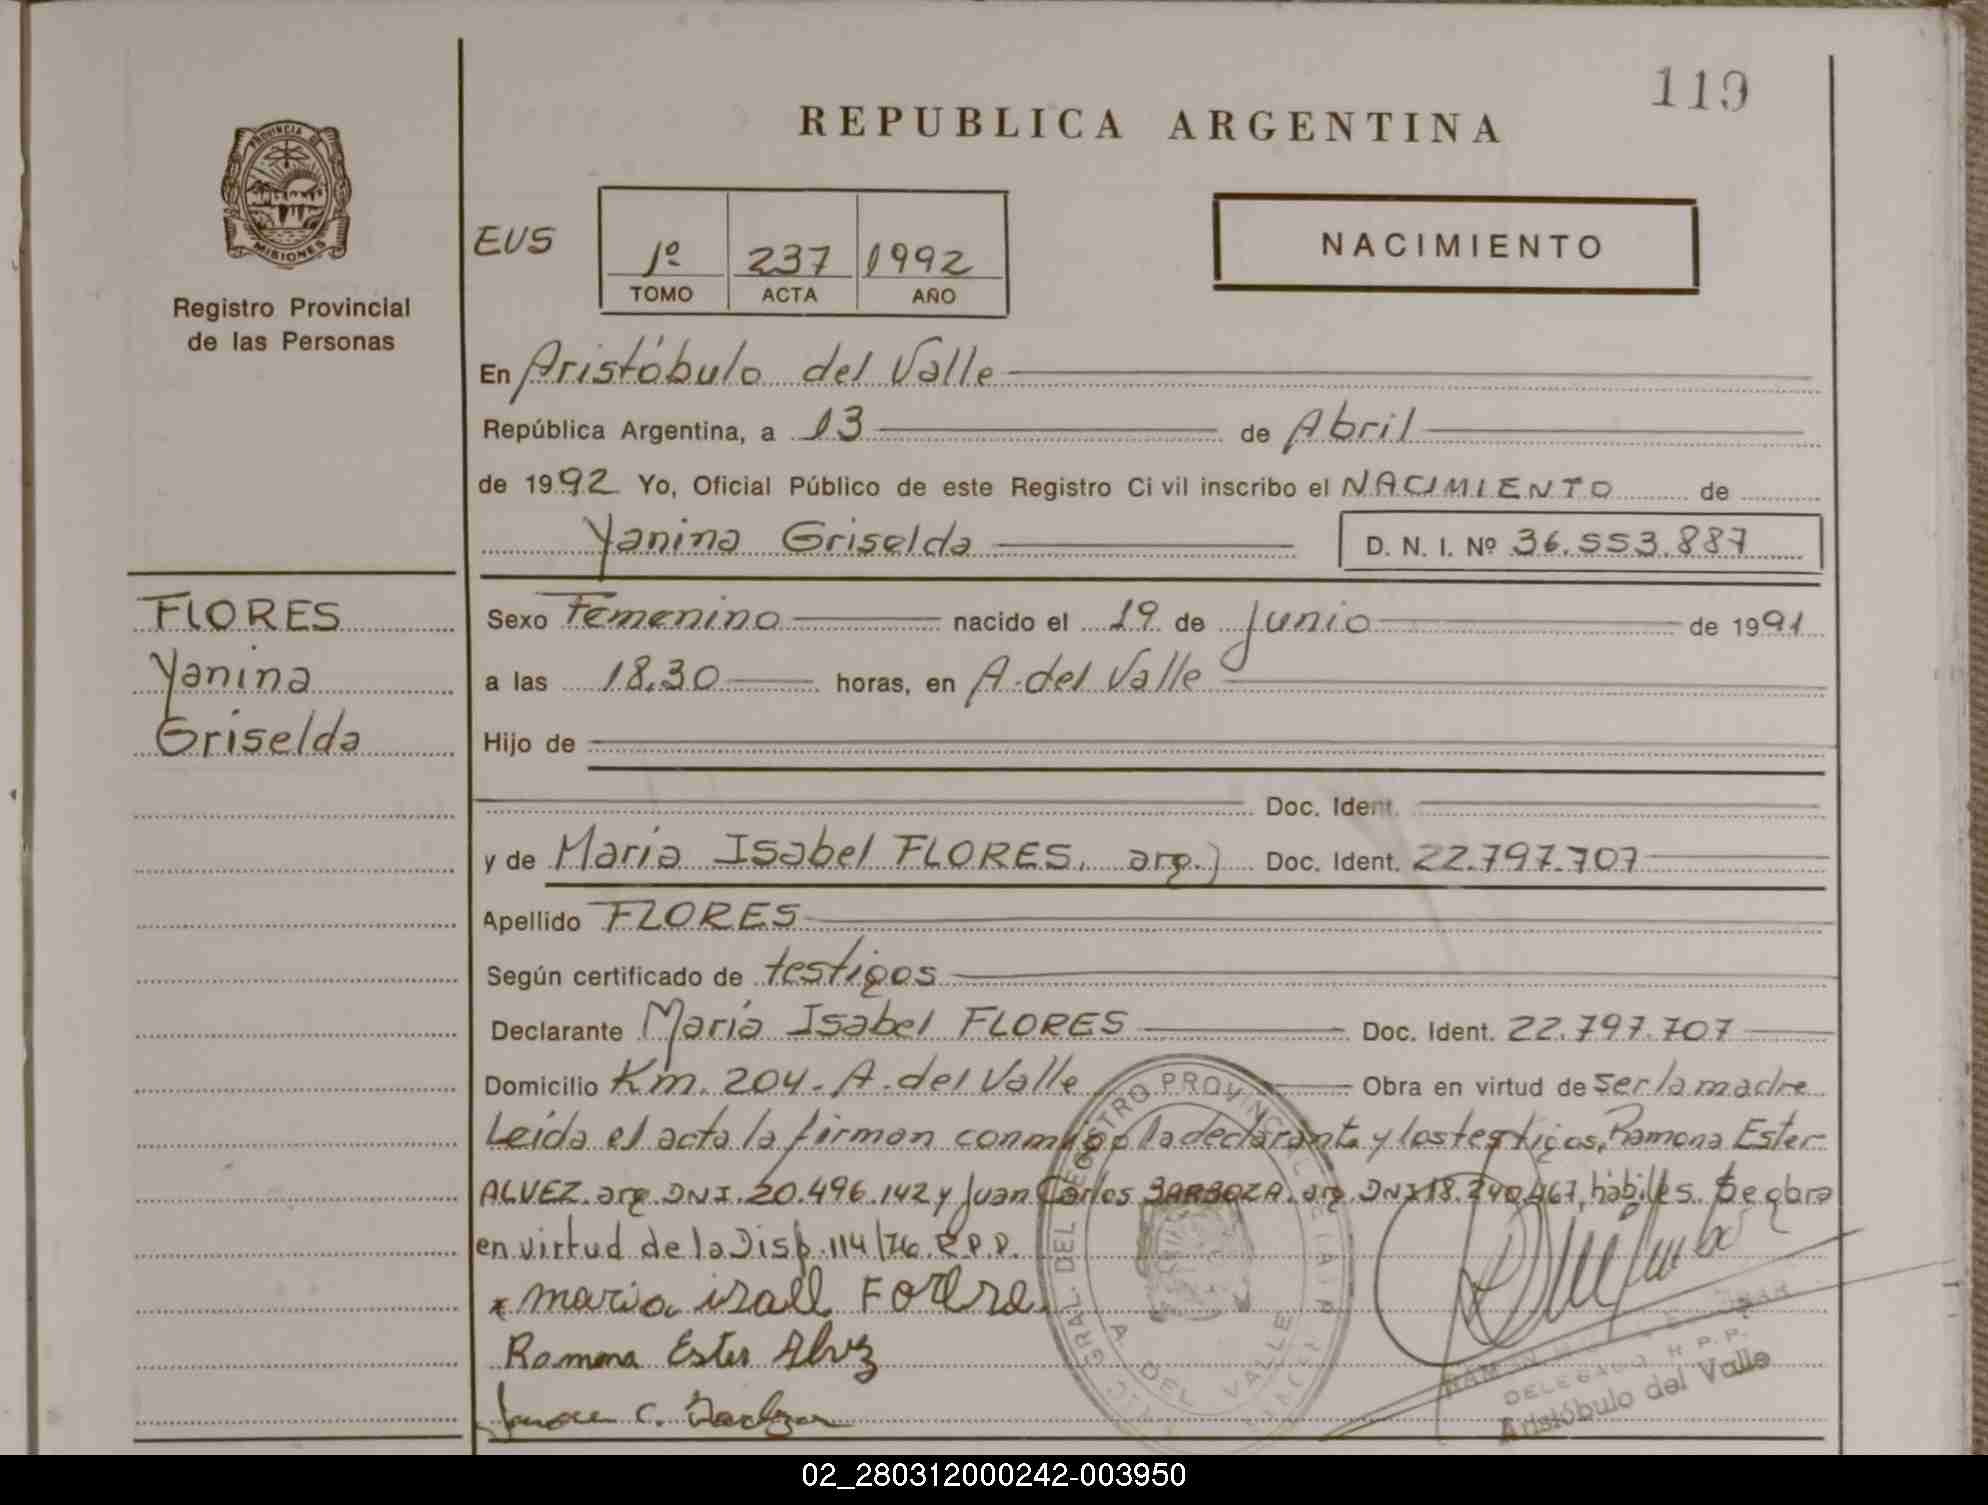 119
REPUBLICA ARGENTINA
PROVINCIA DE
MISIONES
Registro Provincial
de las Personas
EUS
1º 237 1992
TOMO ACTA AÑO
NACIMIENTO
En Aristóbulo del Valle
República Argentina, a 13 de Abril
de 1992 Yo, Oficial Público de este Registro Ci vil inscribo el NACIMIENTO de
Yanina Griselda D. N. I. Nº 36.553.887
FLORES
Yanina
Griselda
Sexo Femenino nacido el 19 de Junio de 1991
a las 18.30 horas, en A. del Valle
Hijo de
Doc. Ident.
y de María Isabel FLORES, arg.) Doc. Ident. 22.797.707
Apellido FLORES
Según certificado de testigos
Declarante María Isabel FLORES Doc. Ident. 22.797.707
Domicilio Km. 204. A. del Valle Obra en virtud de ser la madre
Leída el acta la firman conmigo la declarante y los testigos, Ramona Ester
ALVEZ. arg. DNI. 20.496.142 y Juan Carlos BARBOZA. arg. DNI 18.240.467, hábiles. Se obra
en virtud de la Disp. 114/76 R.P.P.
Ramona Ester Alvez
REGISTRO PROVINCIAL DE LAS P
GRAL. DEL
A. DEL VALLE
DELEGADO R.P.P.
Aristóbulo del Valle
02_280312000242-003950